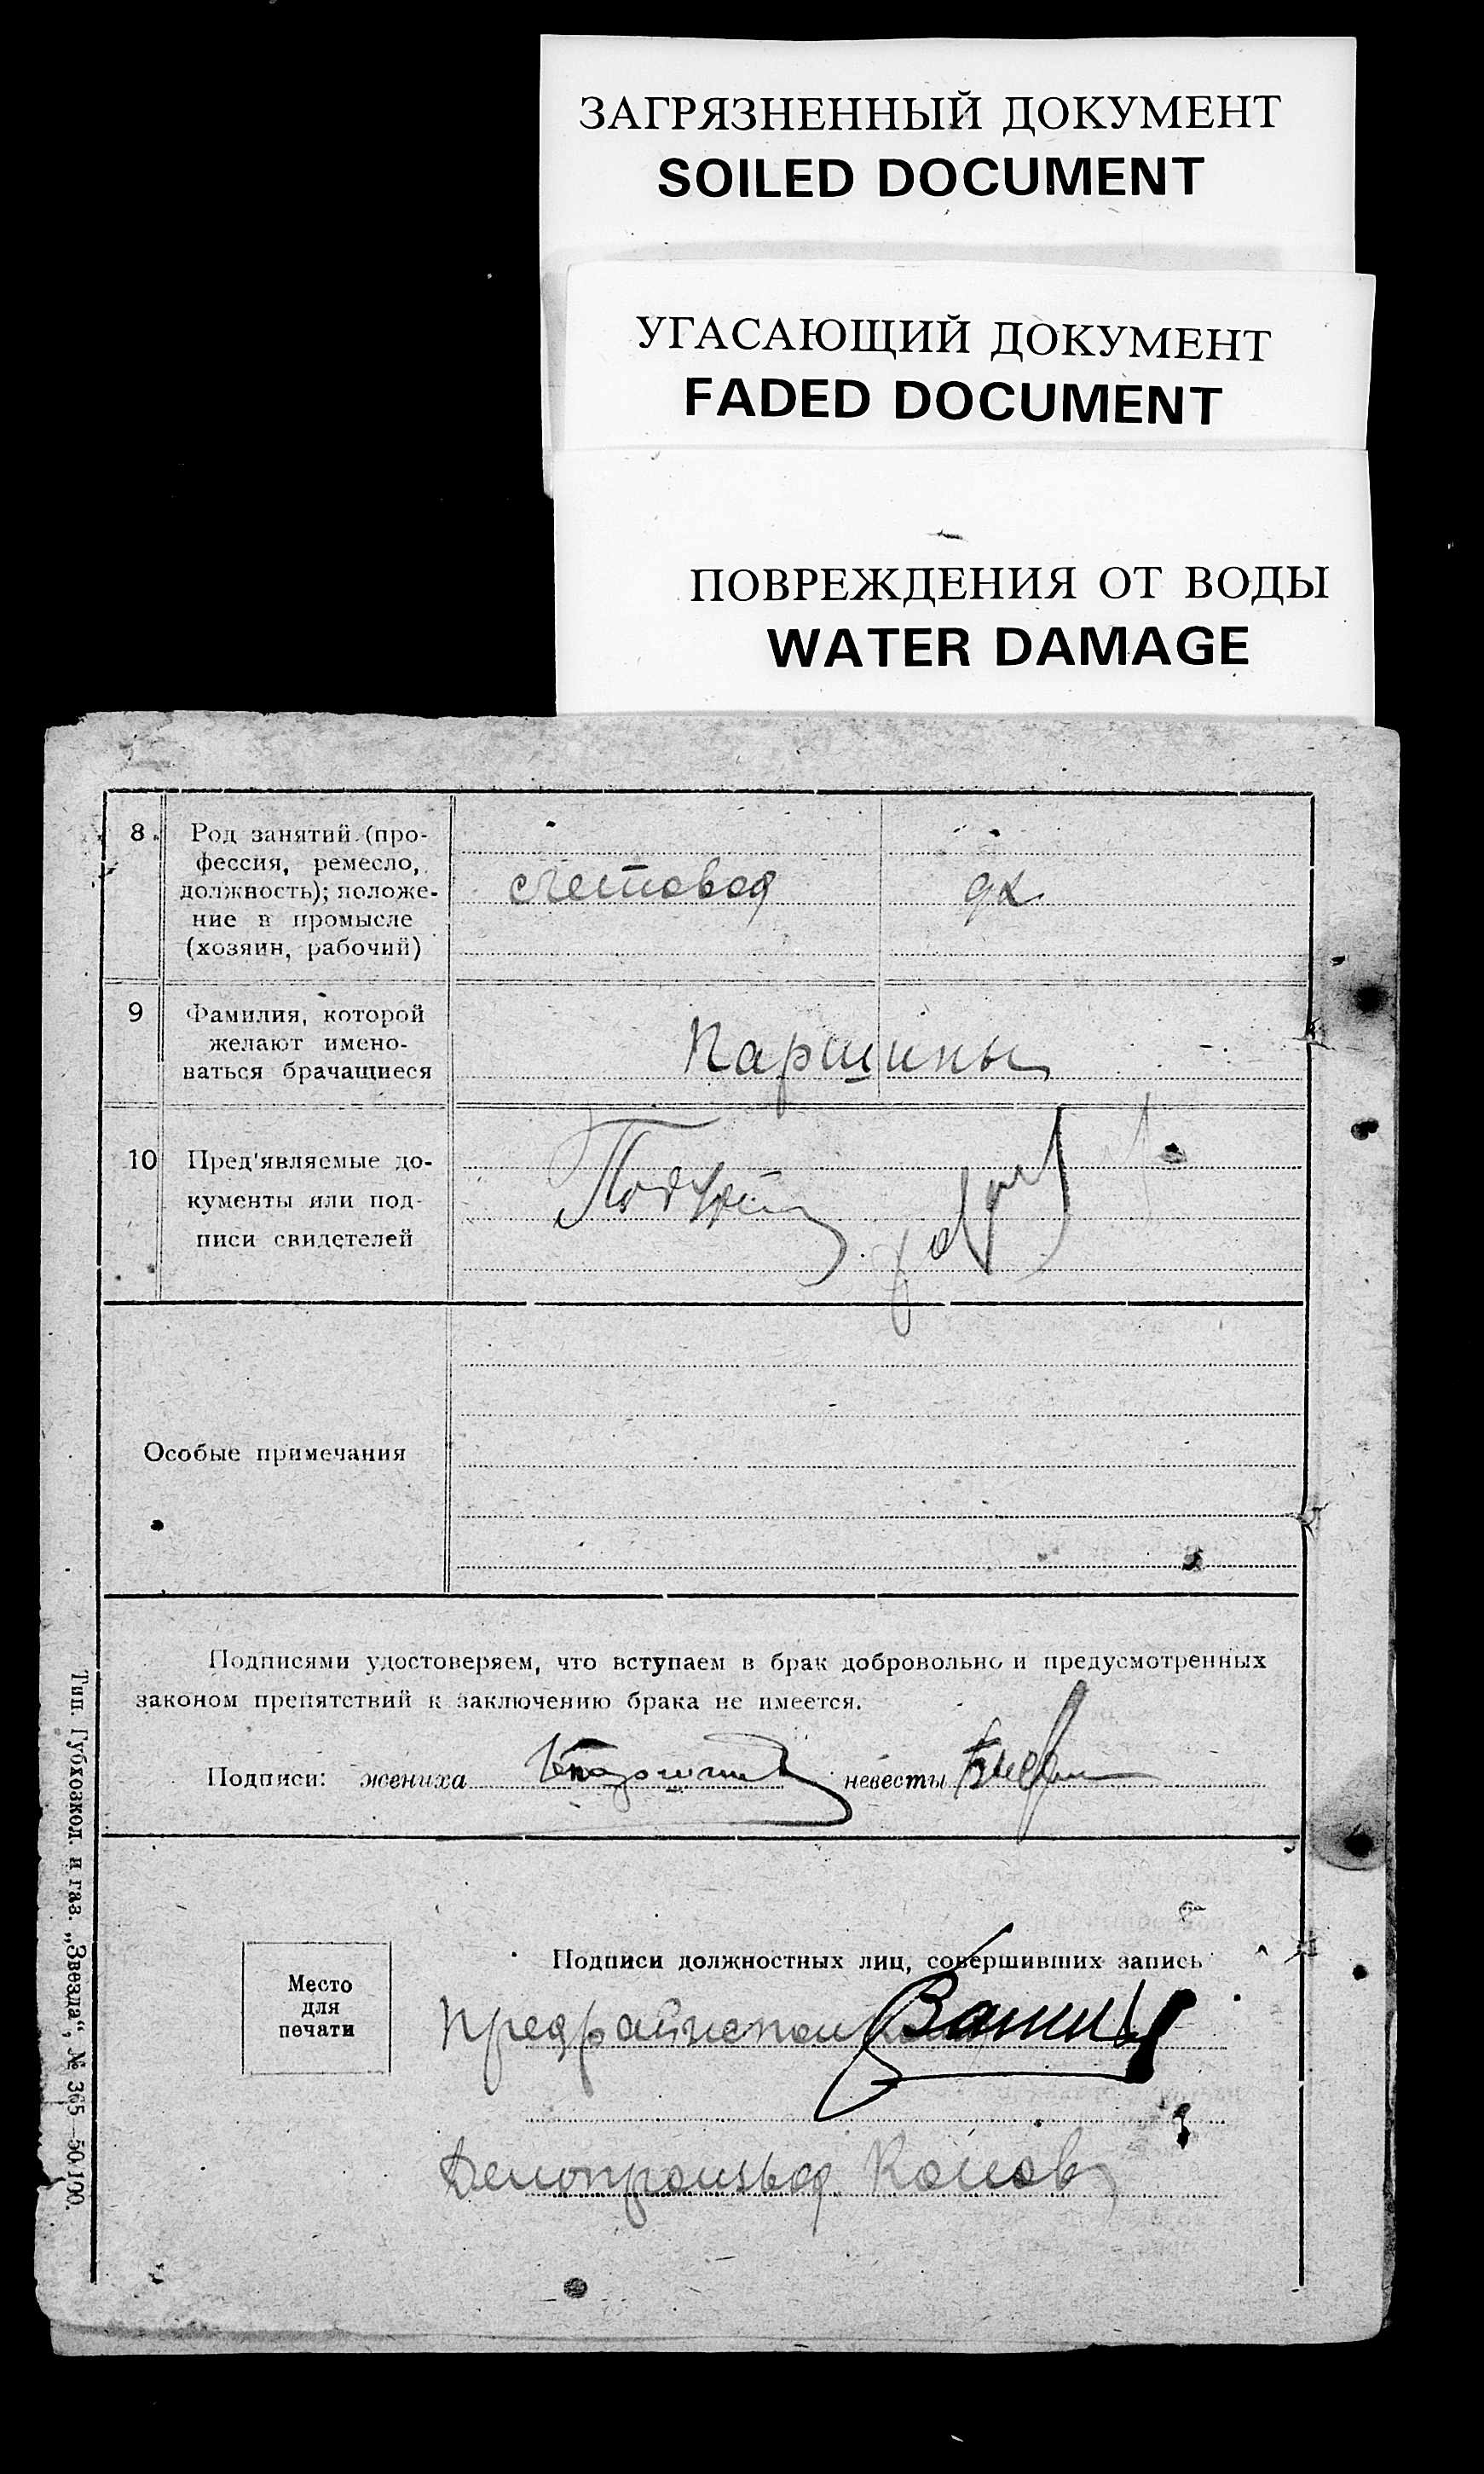 ЗАГРЯЗНЕННЫЙ ДОКУМЕНТ
SOILED DOCUMENT
УГАСАЮЩИЙ ДОКУМЕНТ
FADED DOCUMENT
ПОВРЕЖДЕНИЯ ОТ ВОДЫ
WATER DAMAGE
8. Род занятий (про-
фессия, ремесло,
должность); положе-
ние в промысле
(хозяин, рабочий)
счетовод дх
9 Фамилия, которой
желают имено-
ваться брачащиеся
Паршины
10 Пред'являемые до-
кументы или под-
писи свидетелей
Особые примечания
Подписями удостоверяем, что вступаем в брак добровольно и предусмотренных
законом препятствий к заключению брака не имеется.
Подписи: жениха невесты
Место
для
печати
Подписи должностных лиц, совершивших запись
Предрайисполкома
Делопроизвод
Тип. Губхозкол. и газ. „Звезда“, № 365—50.100.